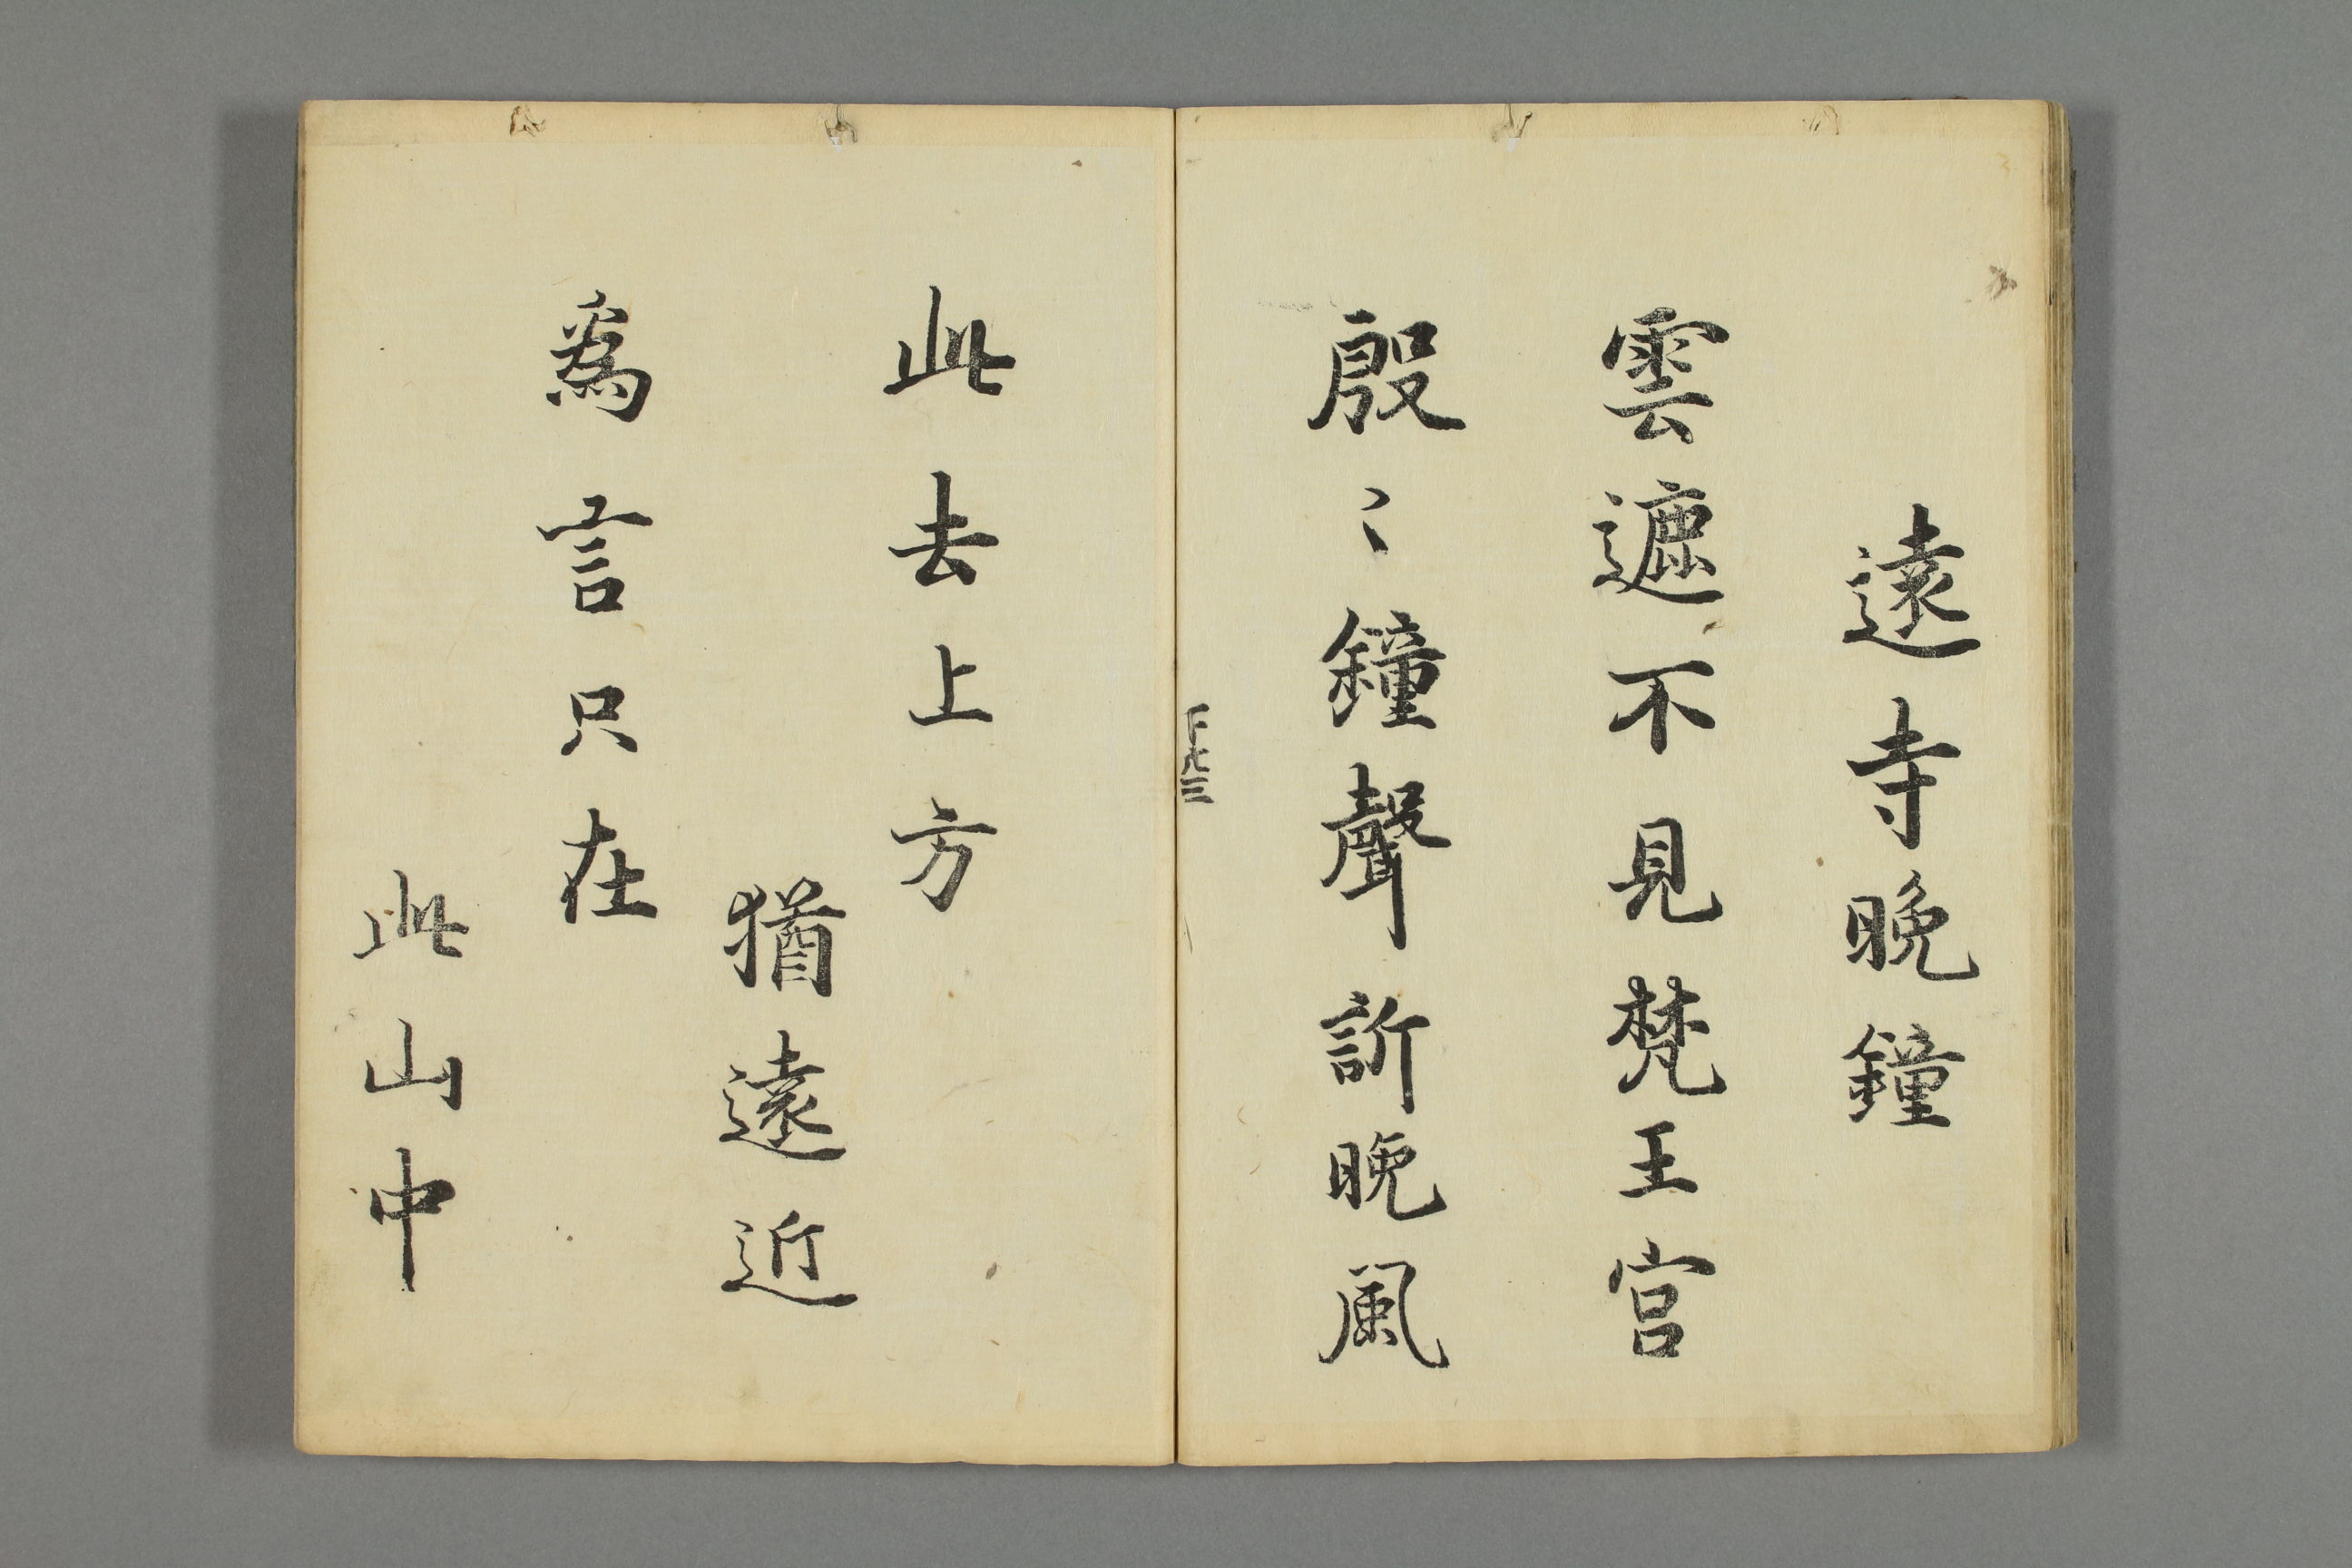 遠寺晩鐘
雲遮不見梵王宮
殷〻鐘聲訴晩風
下九三
此去上方
猶遠近
為言只在
此山中